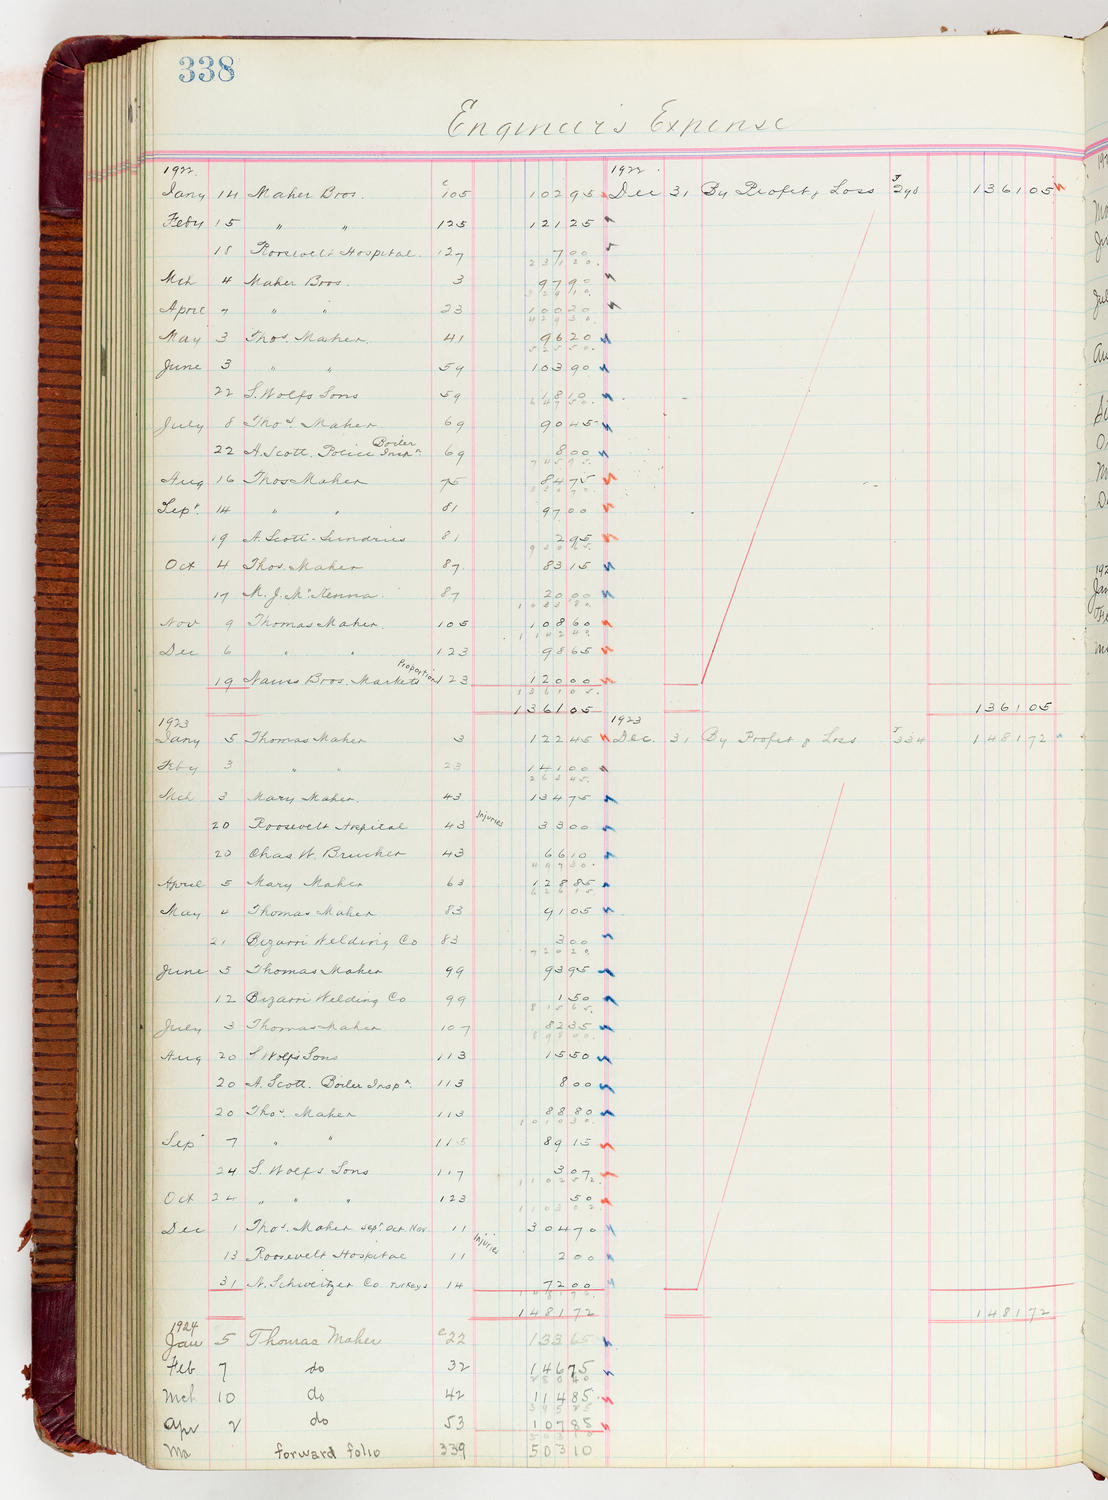 338
Engineer's Expense
1922. 1922.
Jany 14 Maher Bros. c 105 102 95 Dec 31 By Profit & Loss J 290 1361 05
Feby 15 " " 125 121 25
18 Roosevelt Hospital. 127 7 00
231 20.
Mch 4 Maher Bros. 3 97 90
329 10.
April 7 " " 23 100 20
429 30.
May 3 Thos. Maher. 41 96 20
525 50.
June 3 " " 59 103 90
22 S. Wolfs Sons 59 18 10
647 50.
July 8 Thos. Maher 69 90 45
22 A. Scott. Police Boiler Inspn 69 8 00
745 95.
Aug 16 Thos Maher 75 84 75
830 70.
Sept. 14 " " 81 97 00
19 A. Scott - Sundries 81 2 95
930 65.
Oct 4 Thos. Maher 87. 83 15
17 M. J. McKenna. 87 20 00
1033 80.
Nov 9 Thomas Maher. 105 108 60
1142 40.
Dec 6 " " 123 98 65
19 Nauss Bros. Markets Proportion 123 120 00
1361 05.
1361 05 1361 05
1923 1923
Jany 5 Thomas Maher 3 122 45 Dec. 31 By Profit & Loss J 334 1481 72
Feby 3 " " 23 141 00
263 45.
Mch 3 Mary Maher. 43 134 75
20 Roosevelt Hospital 43 Injuries 33 00
20 Chas W. Brucher 43 66 10
497 30.
April 5 Mary Maher 63 128 85
626 15
May 4 Thomas Maher 83 91 05
21 Bizarri Welding Co 83 3 00
720 20.
June 5 Thomas Maher 99 93 95
12 Bizarri Welding Co 99 1 50
815 65.
July 3 Thomas Maher 107 82 35
898 00.
Aug 20 S Wolfs Sons 113 15 50
20 A. Scott. Boiler Inspn. 113 8 00
20 Thos. Maher 113 88 80
1010 30.
Sep 7 " " 115 89 15
24 S. Wolfs Sons 117 3 07
1102 52.
Oct 24 " " " 123 50
1103 02.
Dec 1 Thos. Maher Sept. Oct. Nov. 11 304 70
13 Roosevelt Hospital 11 Injuries 2 00
31 A. Schweitzer Co Turkeys 14 72 00
1481 72 1481 72
1924
Jan 5 Thomas Maher c 22 133 65
Feb 7 do 32 146 75
280 40
Mch 10 do 42 114 85
395 25
Apr 2 do 53 107 85
503 10
Ma forward folio 339 503 10